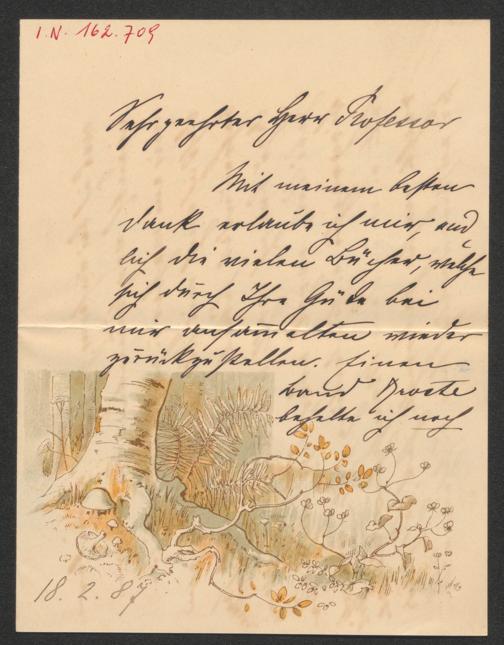 I.N. 162.709
Sehr geehrter Herr Professor
Mit meinem besten
Dank erlaube ich mir, end
lich die vielen Bücher, welche
sich durch Ihre Güte bei
mir ansammelten wieder
zurückzustellen. Einen
Band Droste
behalte ich noch
18. 2. 87